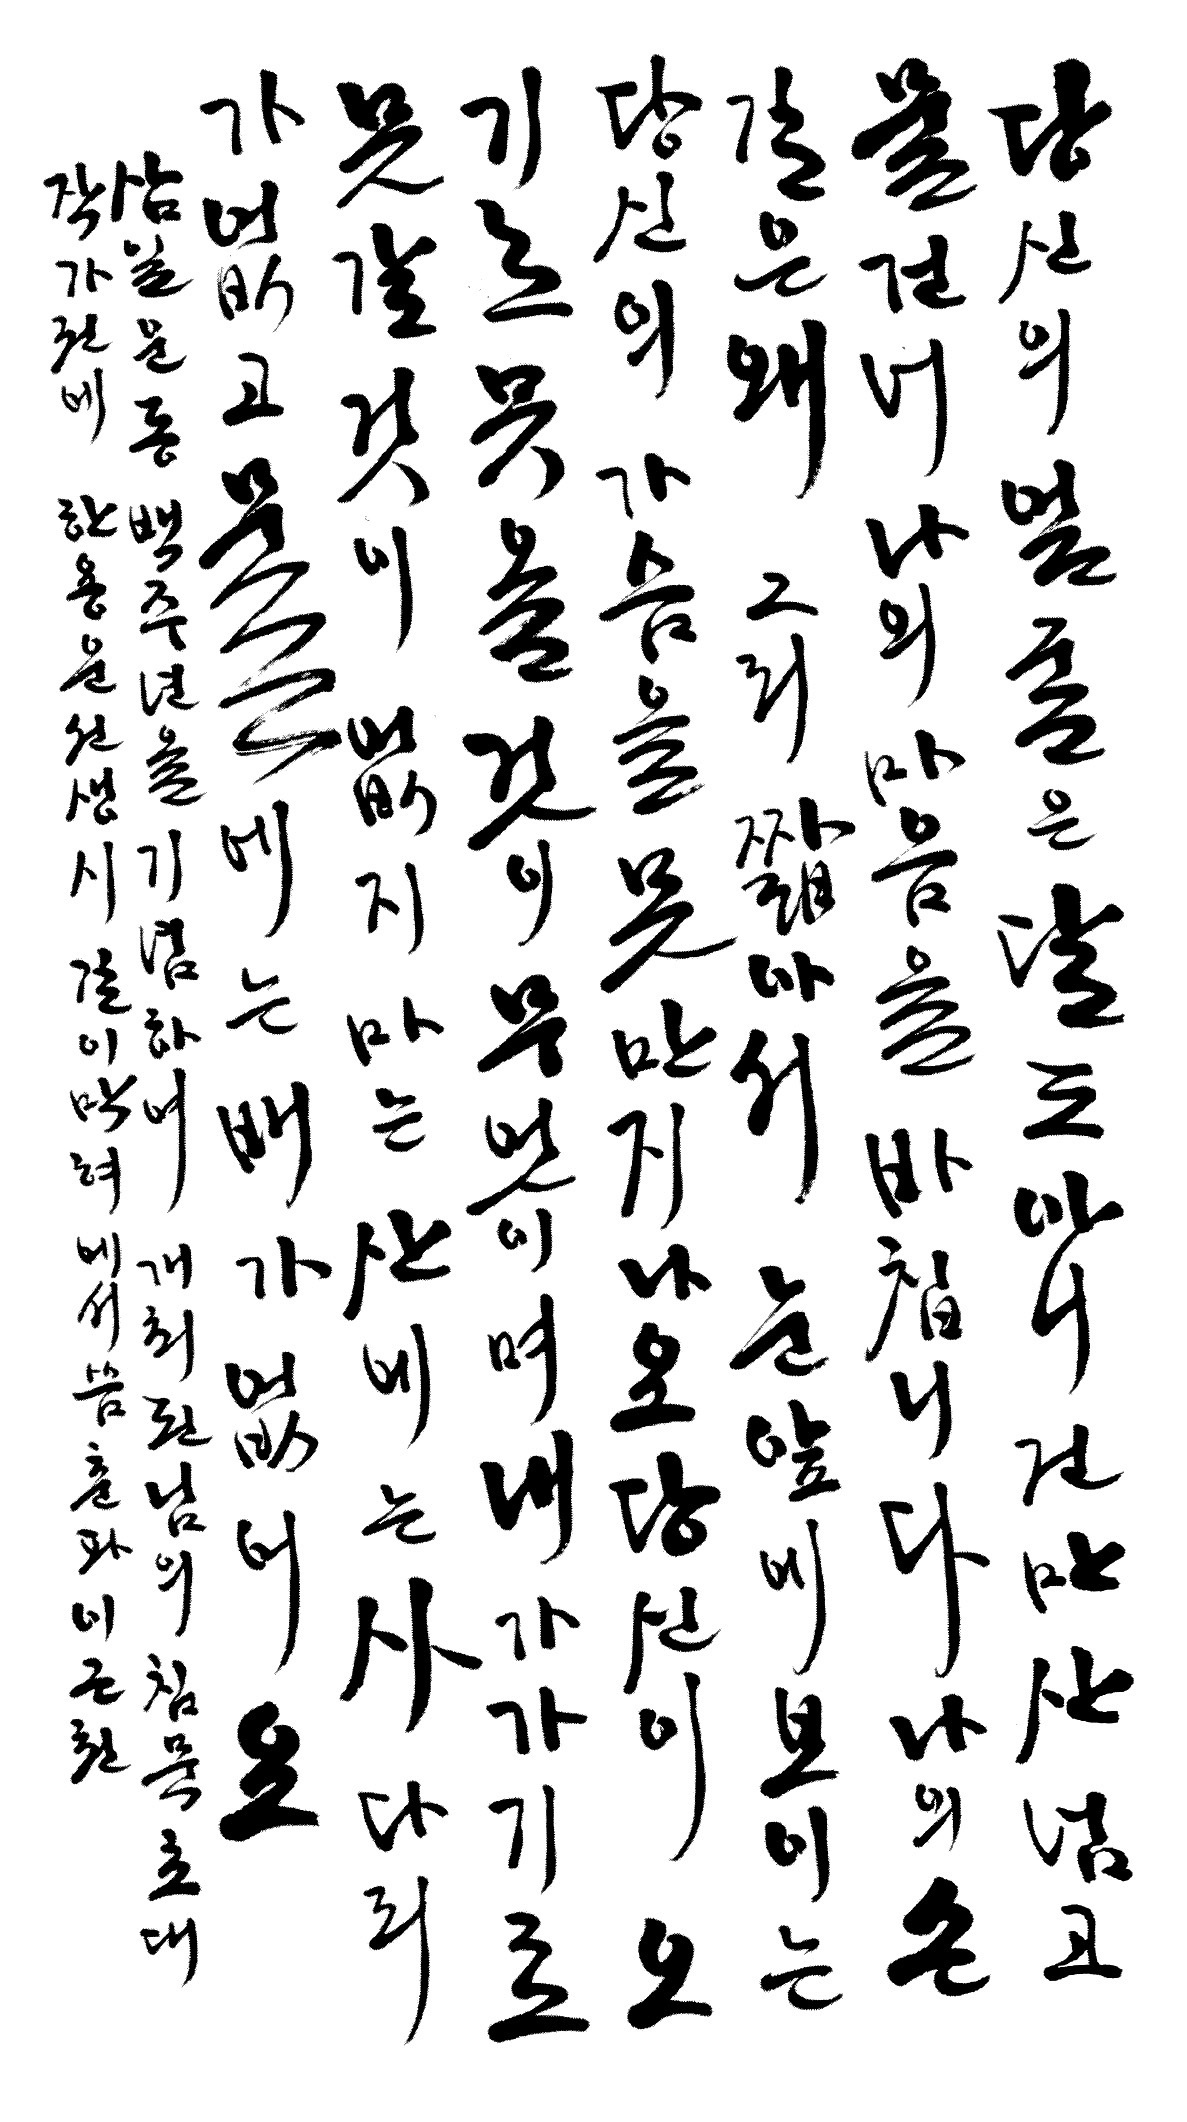 당신의 얼굴은 달도 아니건만 산 넘고
물 건너 나의 마음을 바칩니다 나의 손
길은 왜 그리 짧아서 눈앞에 보이는
당신의 가슴을 못 만지나요 당신이 오
기로 못 올 것이 무엇이며 내가 가기로
못 갈 것이 없지마는 산에는 사다리
가 없고 물에는 배가 없어요
삼일운동 백주년을 기념하여 개최된 님의 침묵 초대
작가전에 한용운 선생 시 길이 막혀에서 씀 춘파